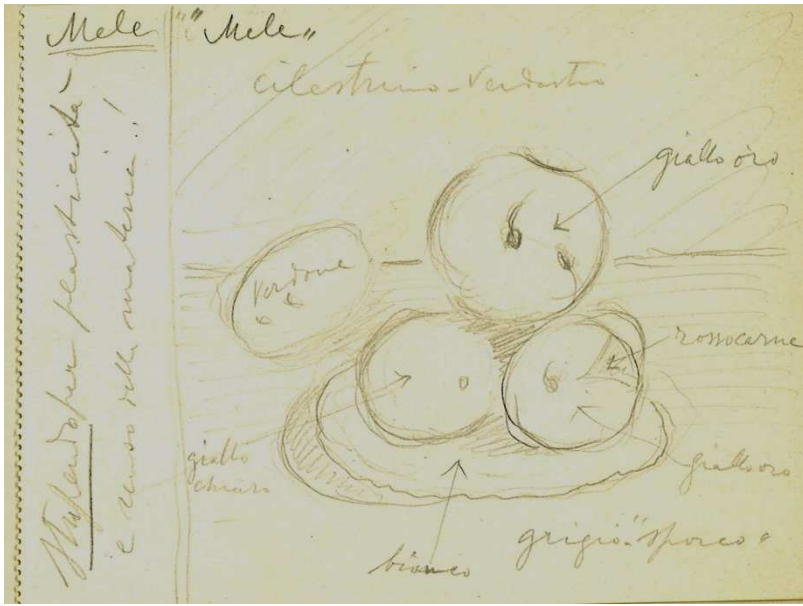 Mele
"Mele"
Stupendo per plasticità
e senso della materia!
cilestrino-verdastro
giallo òro
verdone
rossocarne
giallo
chiaro
giallo oro
bianco
grigio "sporco"